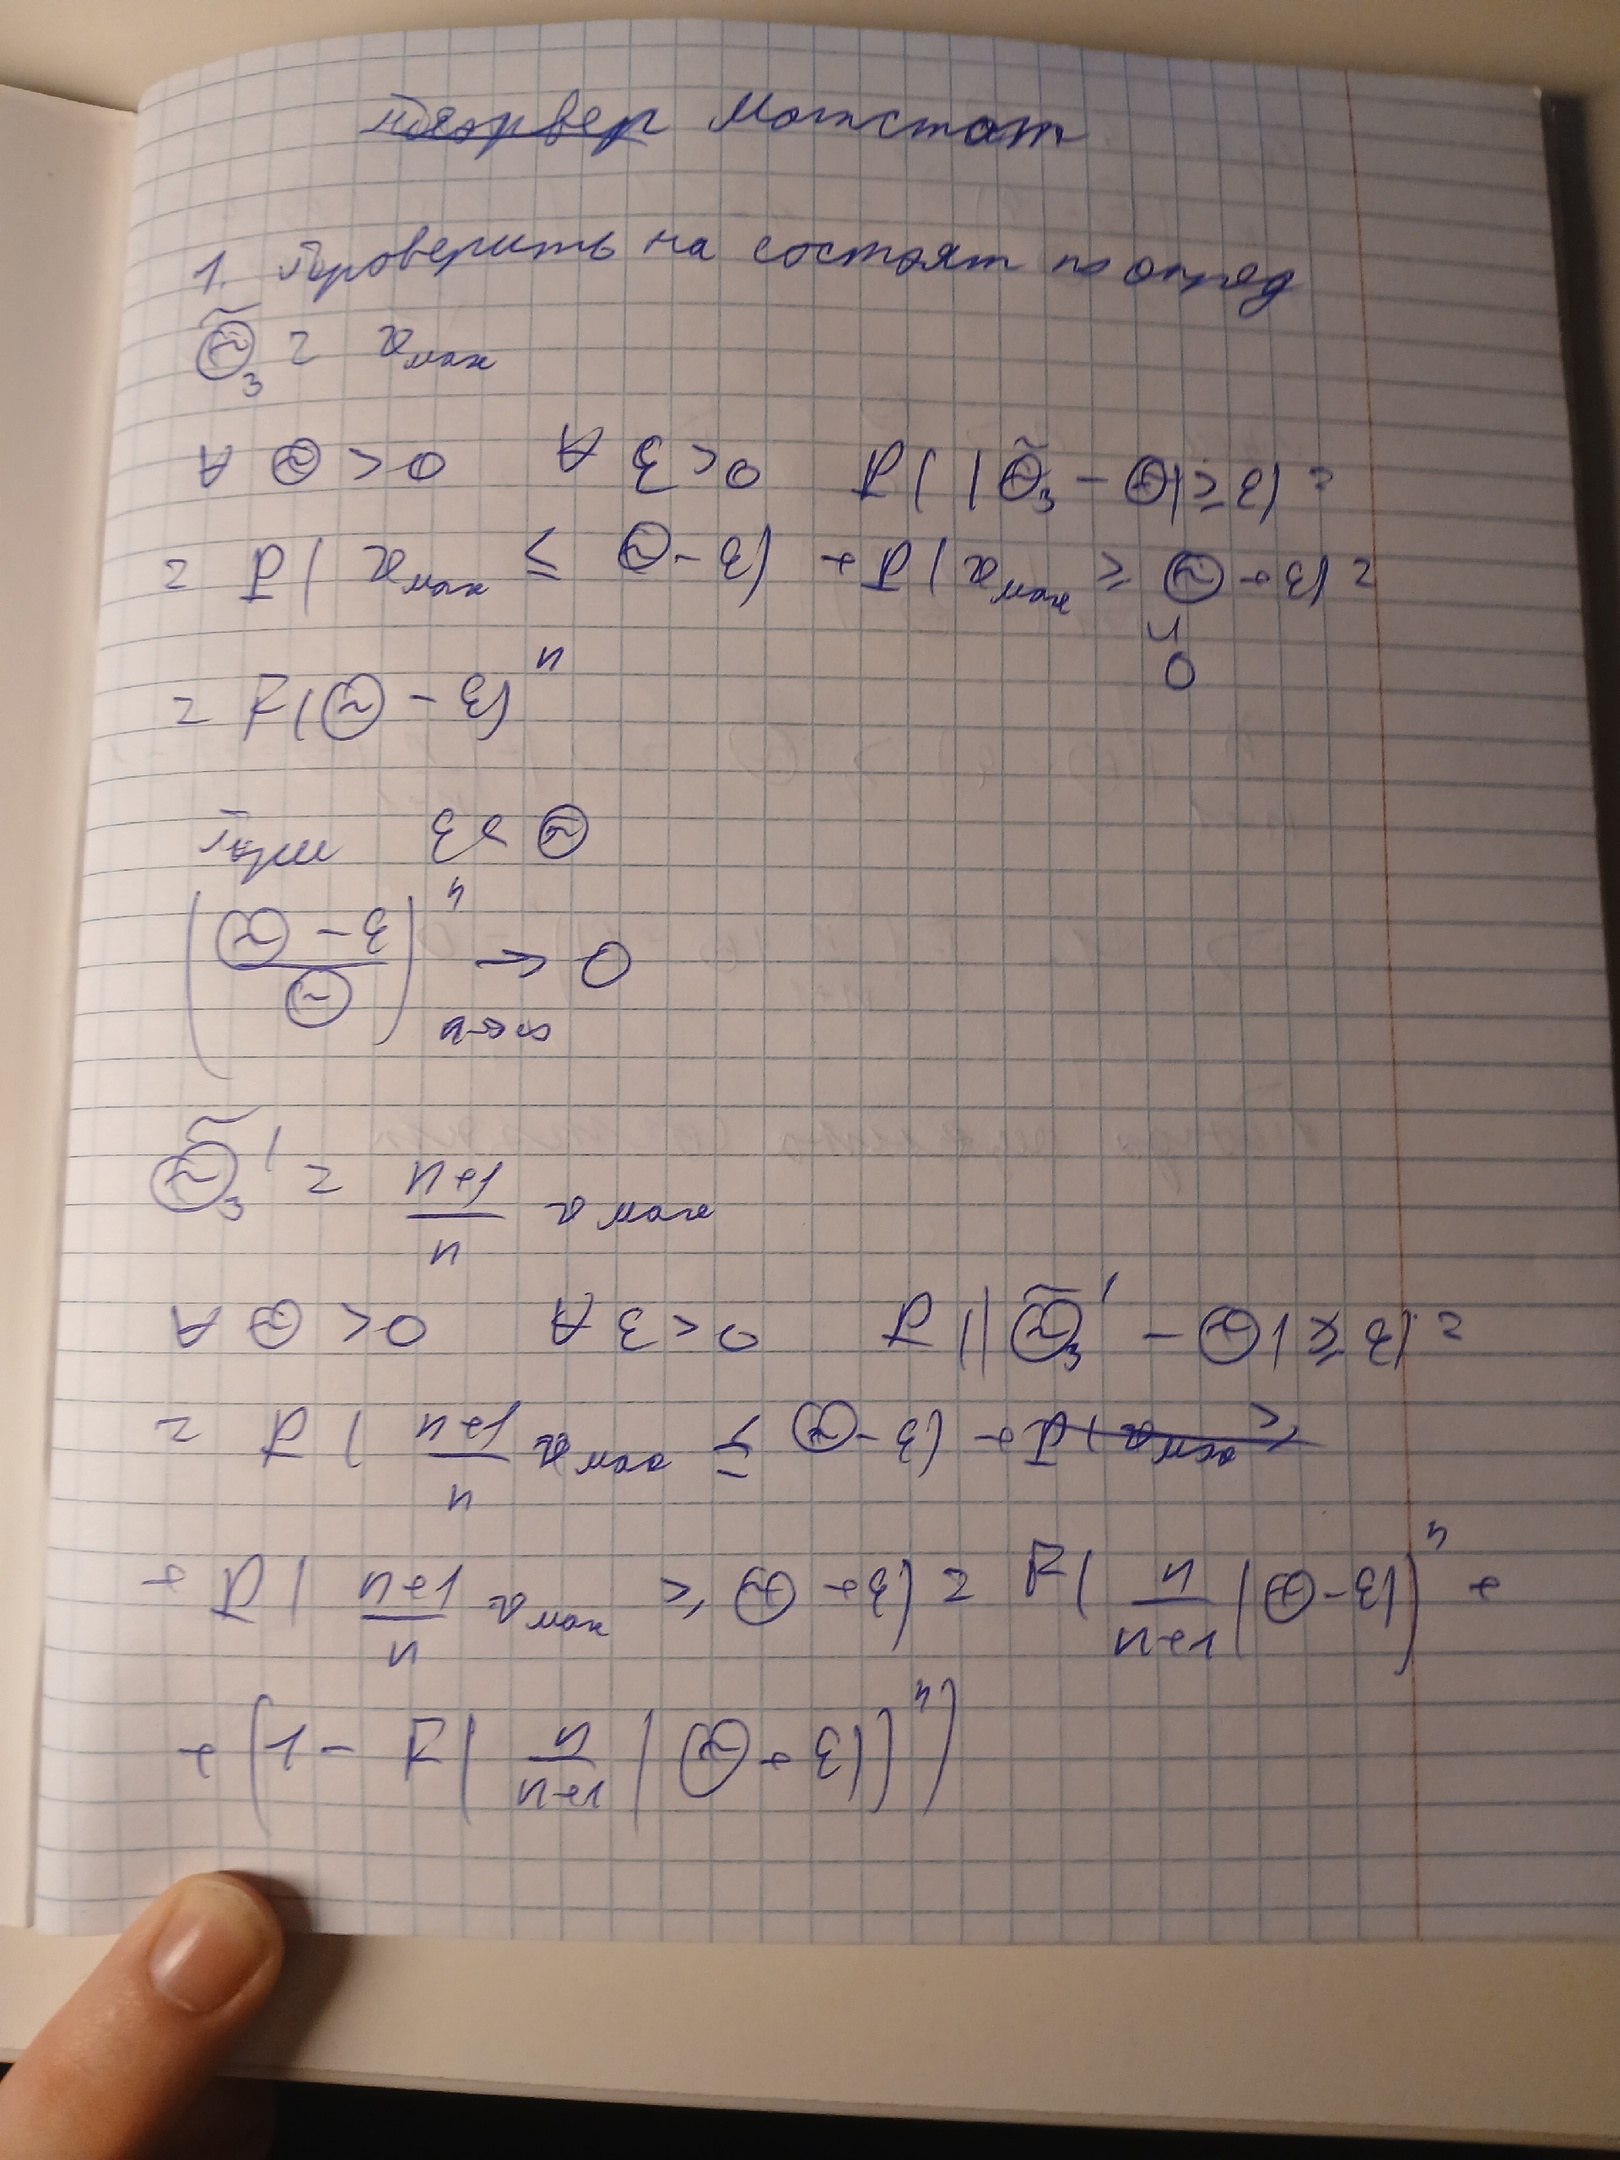 ~~теорвер~~ Матстат
1. Проверить на состоят по опред
Θ̃₃ = xмах
∀ Θ > 0 ∀ ε > 0 P(|Θ̃₃ - Θ| ≥ ε) =
= P(xмах ≤ Θ - ε) + P(xмах ≥ Θ + ε) =
"
0
= F(Θ - ε)ⁿ
При ε < Θ
((Θ - ε)/Θ)ⁿ → 0
n→∞
Θ̃₃' = (n+1)/n xмах
∀ Θ > 0 ∀ ε > 0 P(|Θ̃₃' - Θ| ≥ ε) =
= P((n+1)/n xмах ≤ Θ - ε) + ~~P(xмах ≥~~
+ P((n+1)/n xмах ≥ Θ + ε) = F(n/(n+1) (Θ - ε))ⁿ +
+ (1 - F(n/(n+1) (Θ + ε))ⁿ)